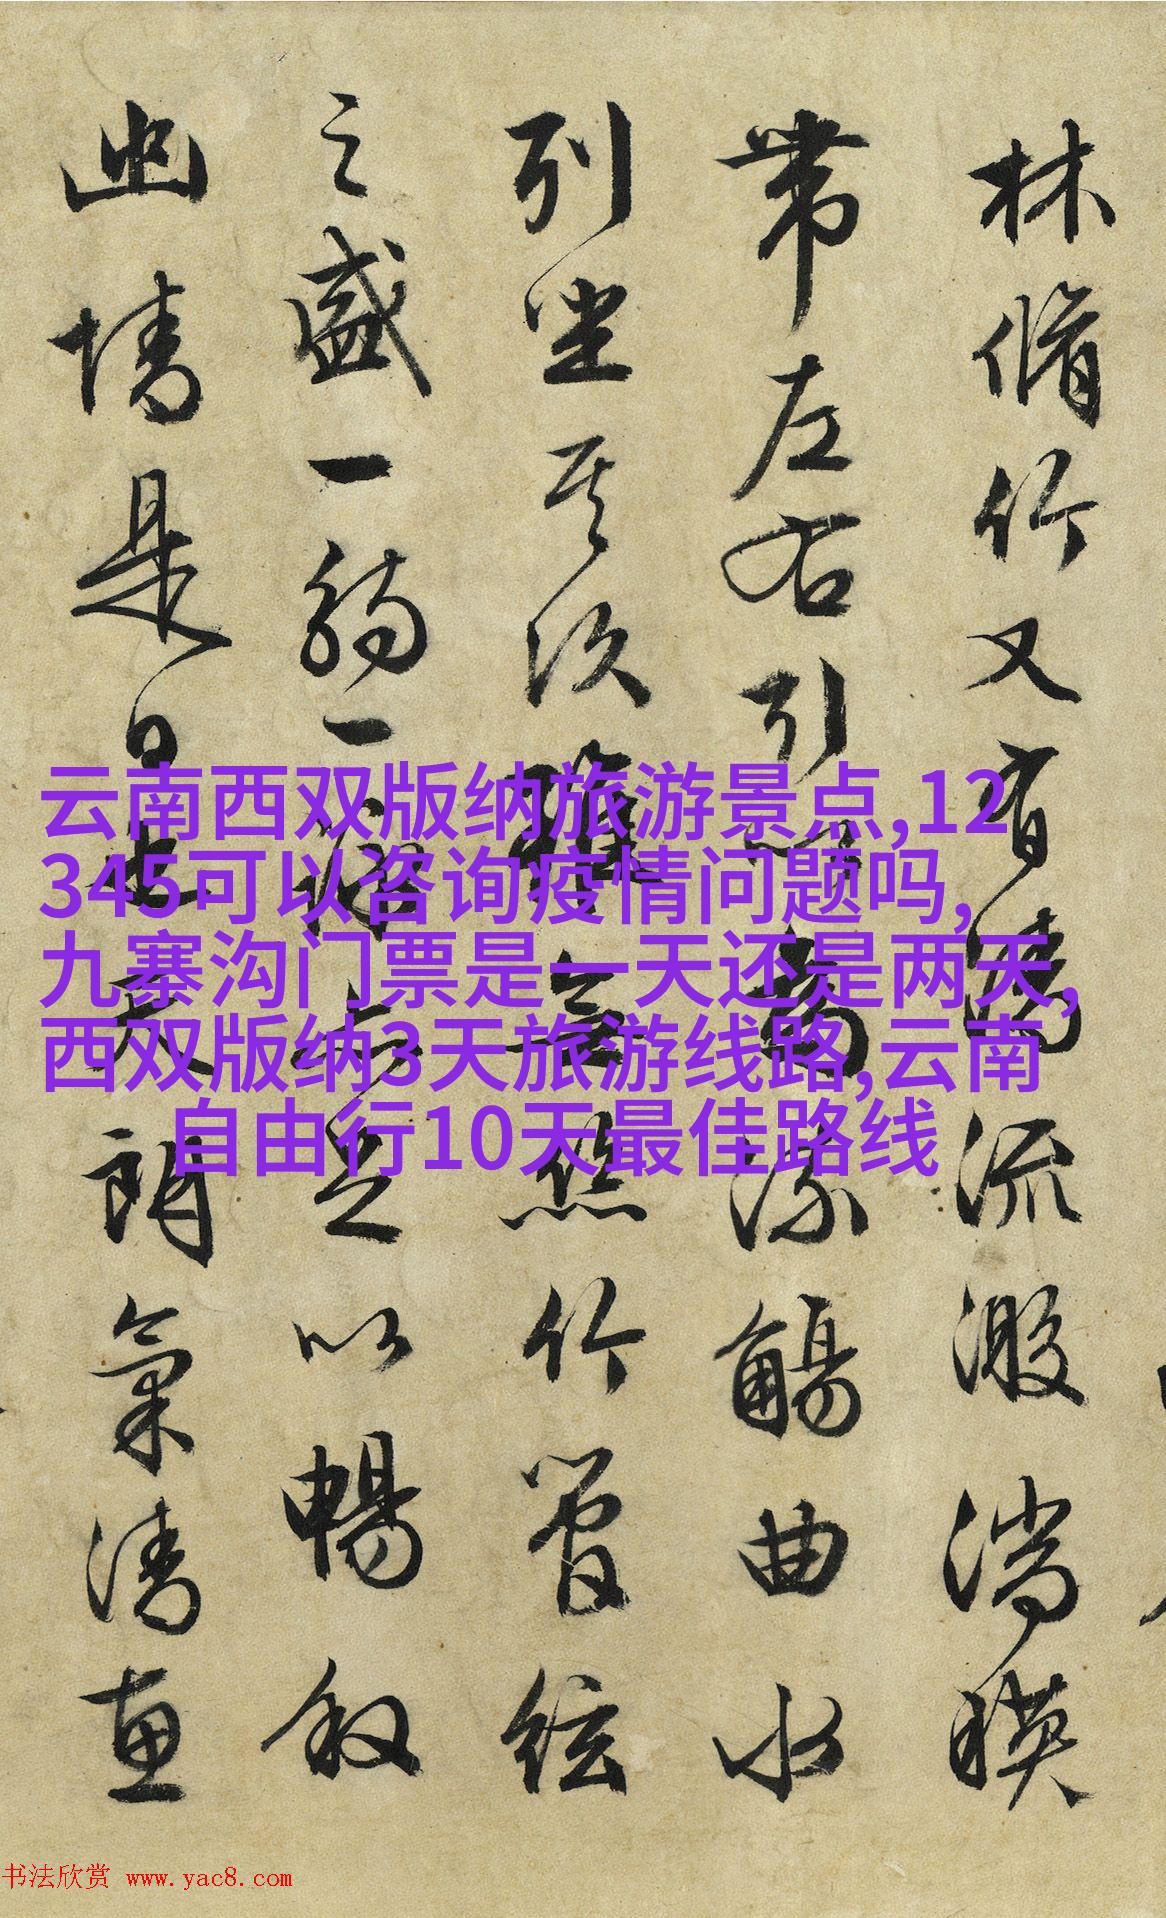 林脩竹又有清流激湍暎
帶左右引以為流觴曲水
列坐其次雖無絲竹管絃
之盛一觴一詠亦足以暢叙
幽情是日也天朗氣清惠
云南西双版纳旅游景点,12
345可以咨询疫情问题吗,
九寨沟门票是一天还是两天,
西双版纳3天旅游线路,云南
自由行10天最佳路线
书法欣赏 www.yac8.com